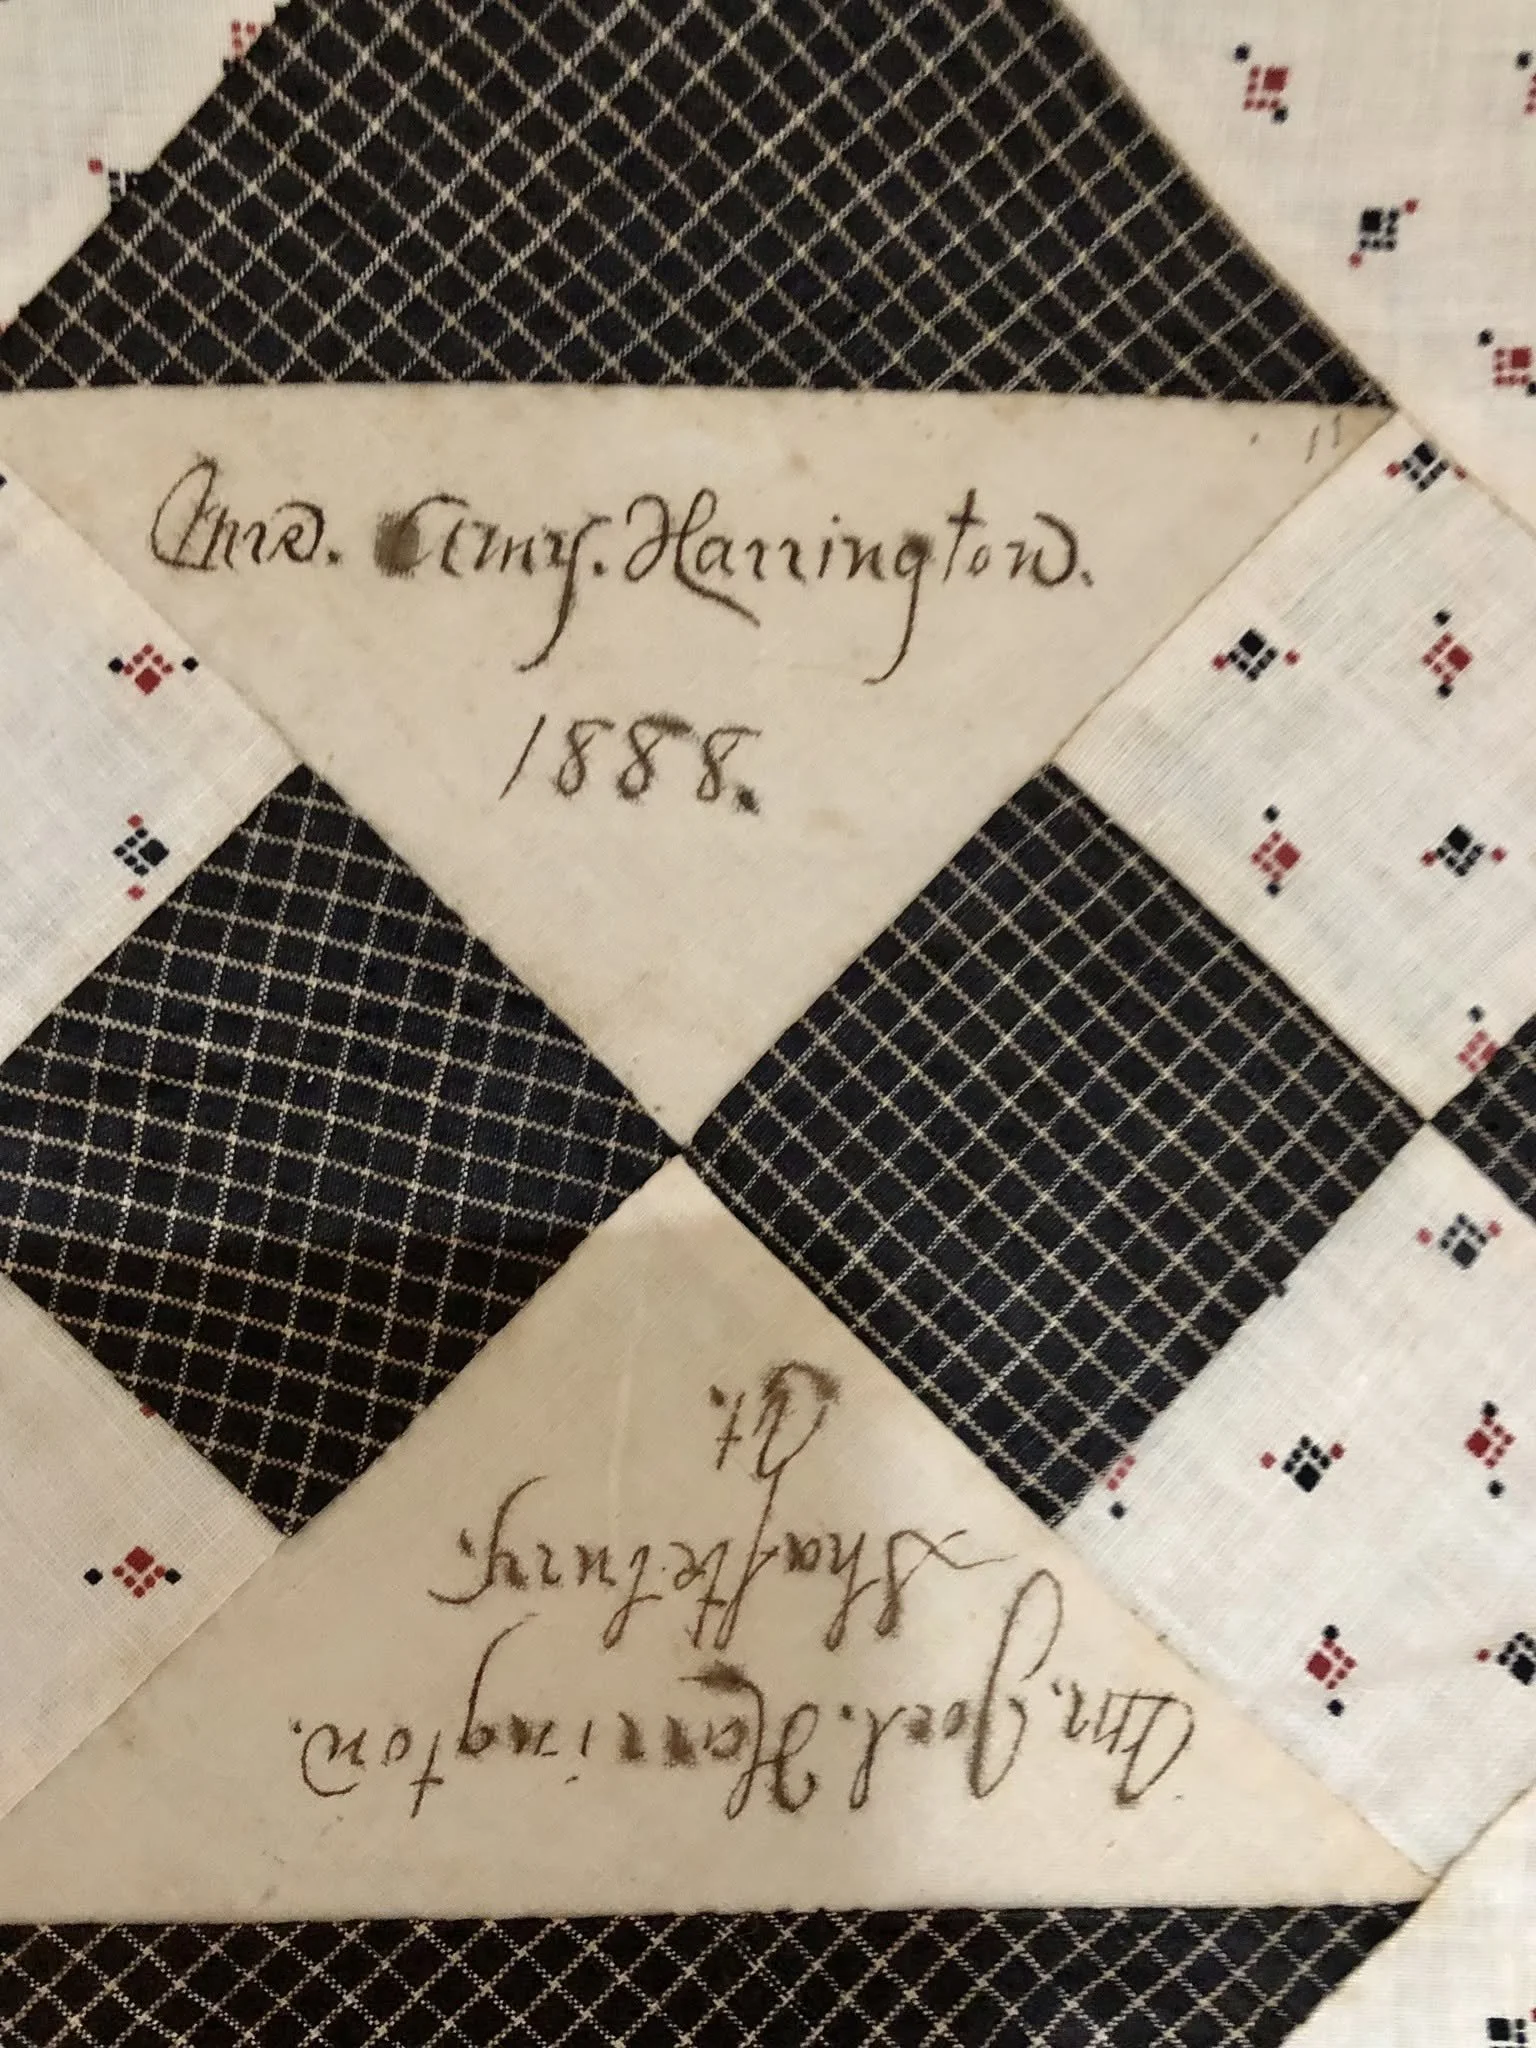 Mrs. Amy. Harrington.
1888.
Mr. Joel. Harrington.
Shaftsbury.
Vt.